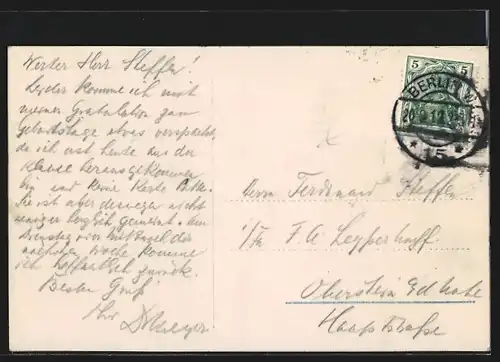 Werter Herr Steffen!
Leider komme ich mit
meiner Gratulation zum
Geburtstage etwas verspätet,
da ich erst heute aus der
Klause herausgekommen
bin und keine Karte
Sie ist aber deswegen nicht
weniger herzlich gemeint. Am
Dienstag oder Mittwoch der
nächsten Woche komme
ich hoffentlich zurück.
Besten Gruß
Ihr
5 5
BERLIN W
15
Herrn Ferdinand Steffen
i/Fa F. A.
Oberstein Edbahn
Hauptstraße